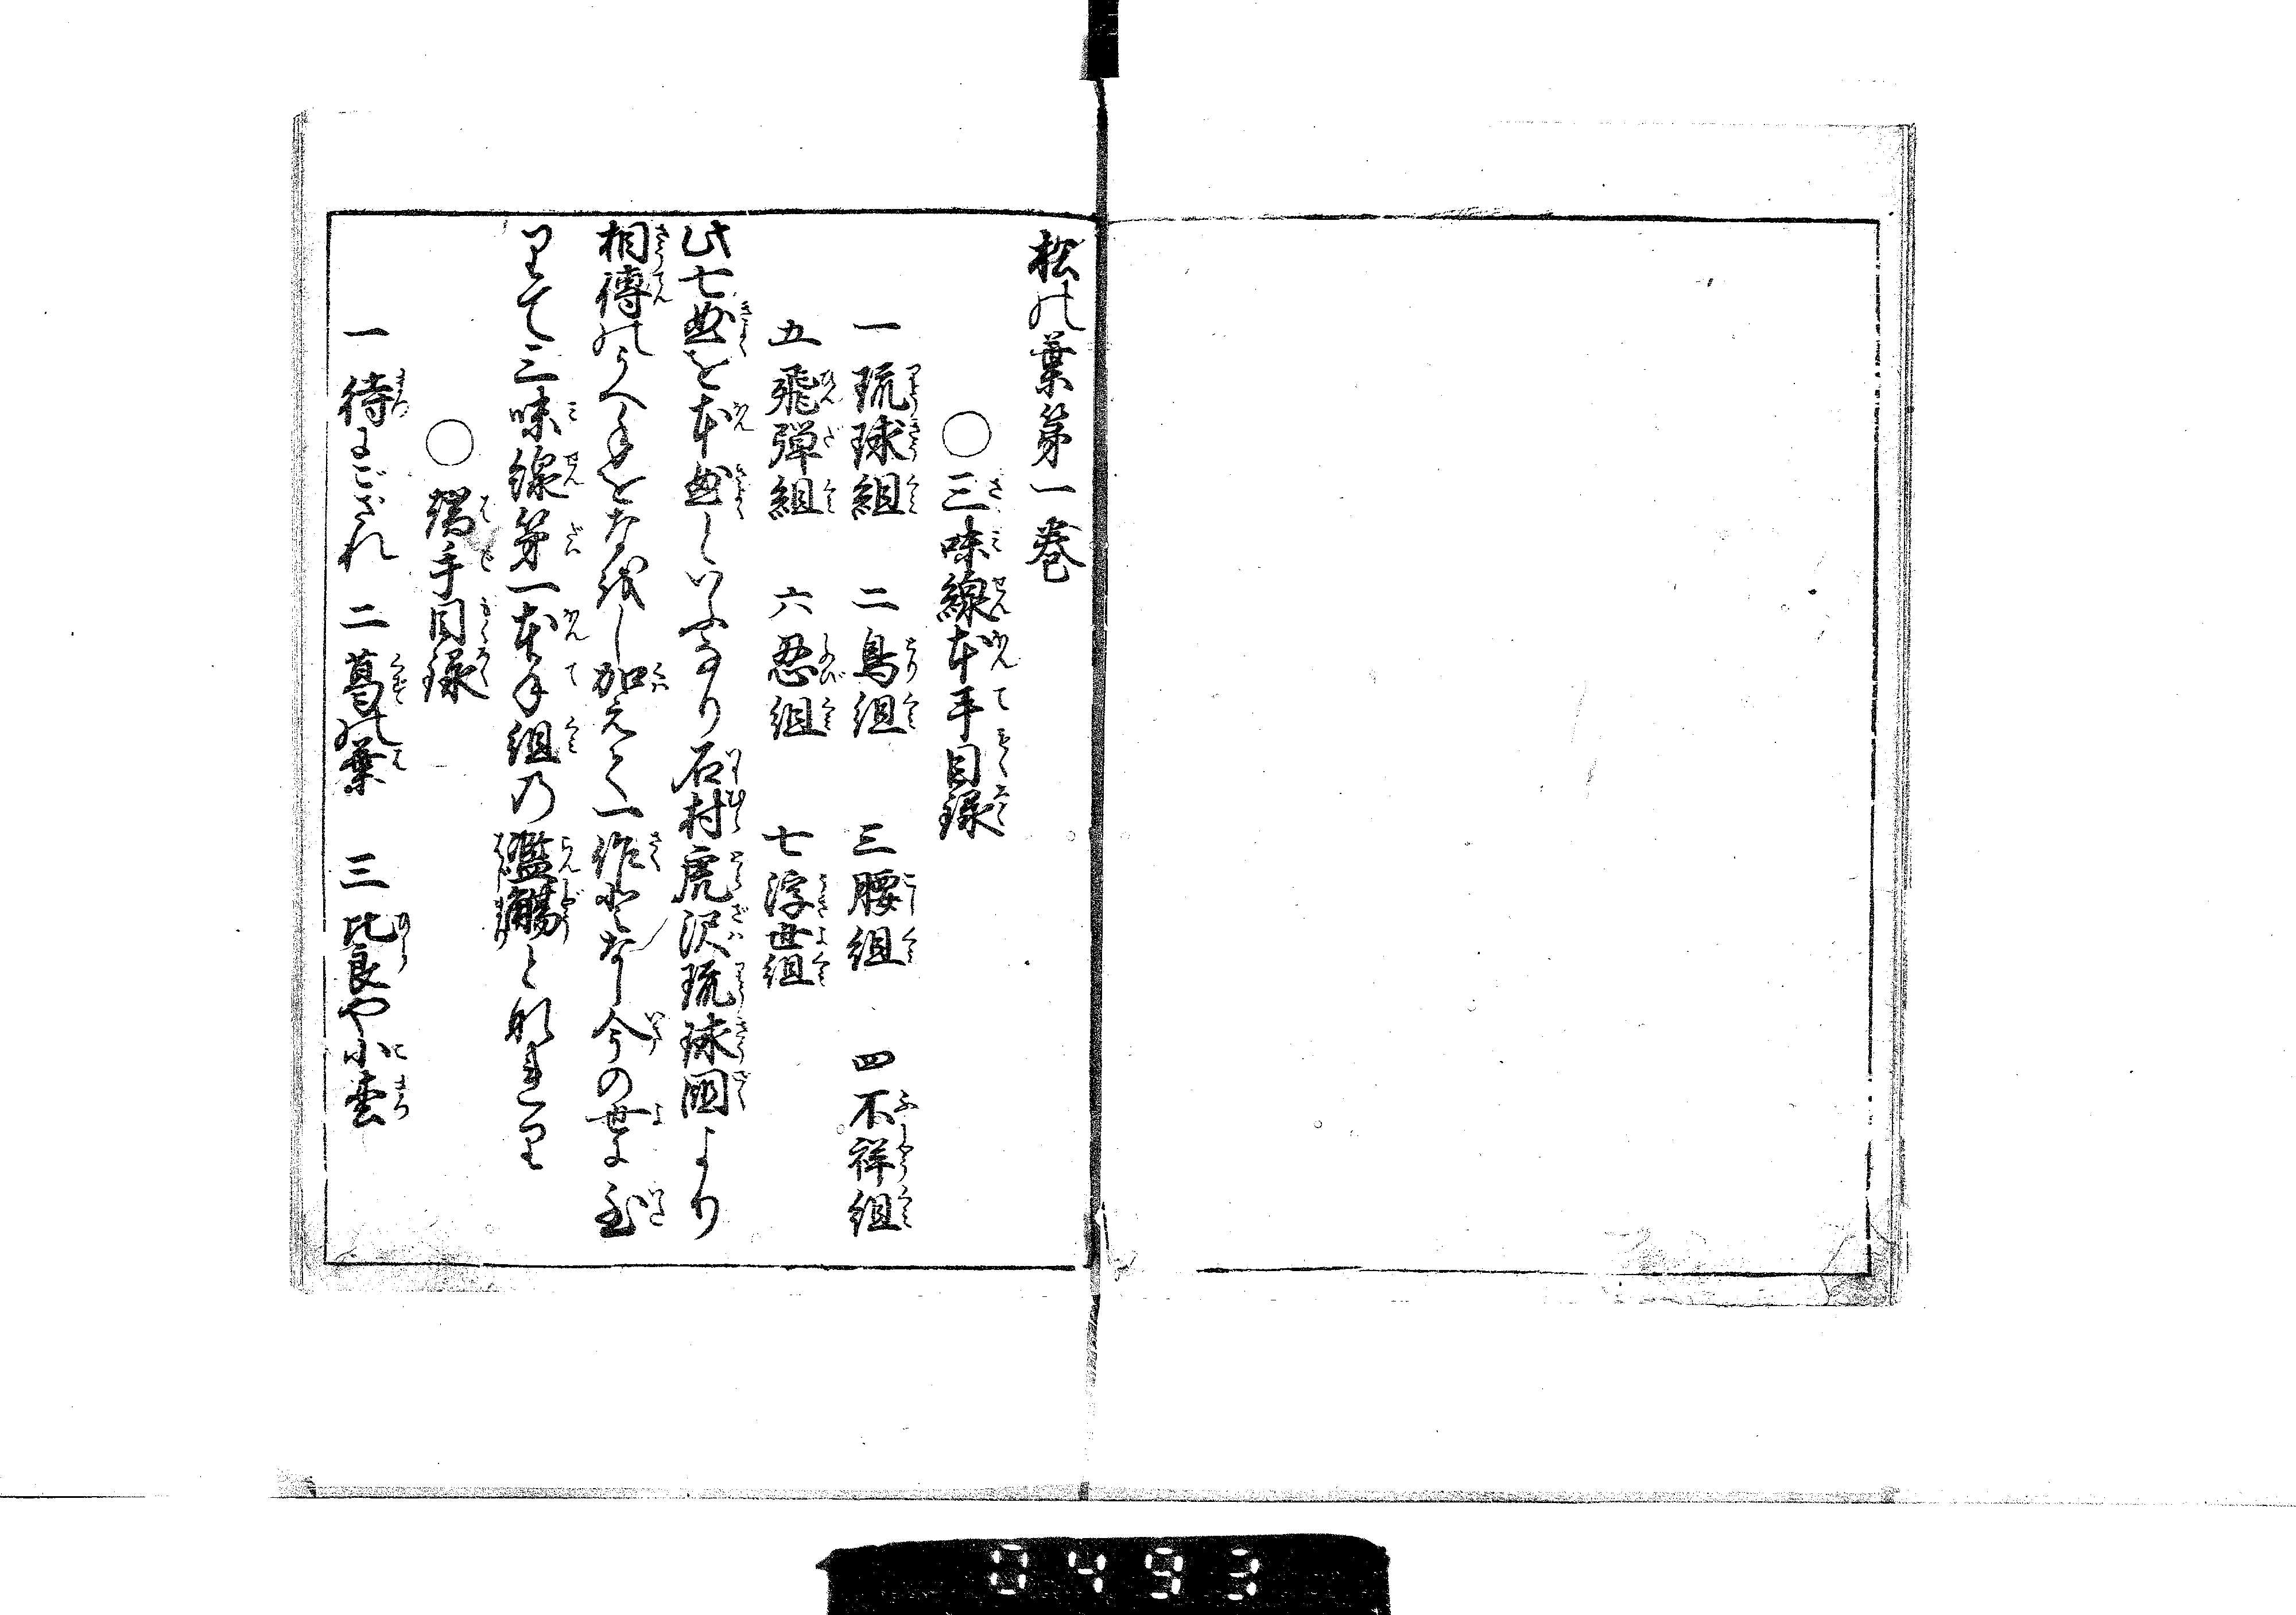 松の葉第一巻
○三味線本手目録
一琉球組 二鳥組 三腰組 四不祥組
五飛弾組 六忍組 七浮世組
此七曲を本曲といふなり石村虎沢琉球国より
相傳のうへ手をなをし加えて一作となし今の世に至
りて三味線第一本手組の濫觴となれり
○端手目録
一待にござれ 二葛の葉 三比良や小松